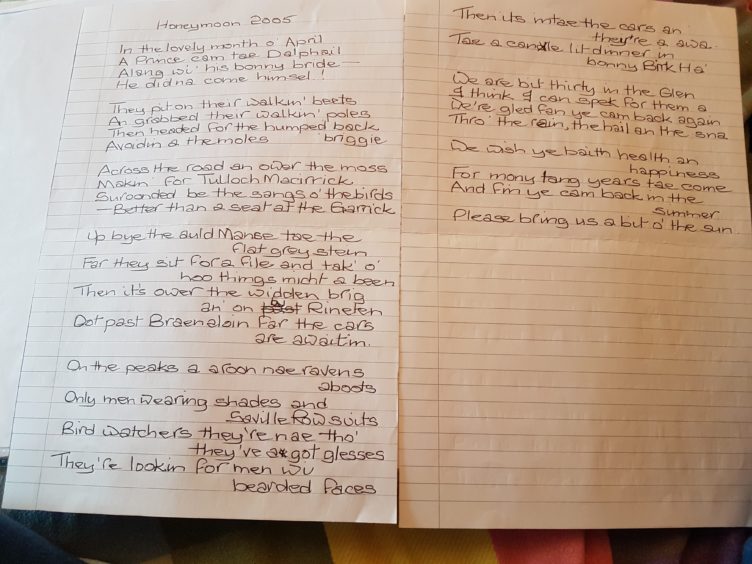 Honeymoon 2005
In the lovely month o' April
A Prince cam tae Dalphail
Alang wi' his bonny bride—
He didna come himsel!
They pit on their walkin' beets
An grabbed their walkin' poles
Then headed for the humped back
briggie
Avoidin a the moles
Across the road an ower the moss
Makin' for Tulloch Macirrick
Suroonded be the sangs o' the birds
—Better than a seat at the Garrick
Up bye the auld Manse tae the
flat grey stein
Far they sit for a file and tak' o'
hoo things micht a been
Then it's ower the widden brig
an' on a Rineten
Oot past Braenaloin far the cars
are awaitin.
On the peaks a aroon nae ravens
aboots
Only men wearing shades and
Saville Row suits
Bird watchers they're nae tho'
they've a got glesses
They're lookin for men wi
bearded faces
Then its intae the cars an
they're a awa.
Tae a candle lit dinner in
bonny Birk Ha'
We are but thirty in the Glen
I think I can spek for them a
We're gled fan ye cam back again
Thro' the rain, the hail an the sna
We wish ye baith health an
happiness
For mony lang years tae come
And fin ye cam back in the
summer
Please bring us a bit o' the sun